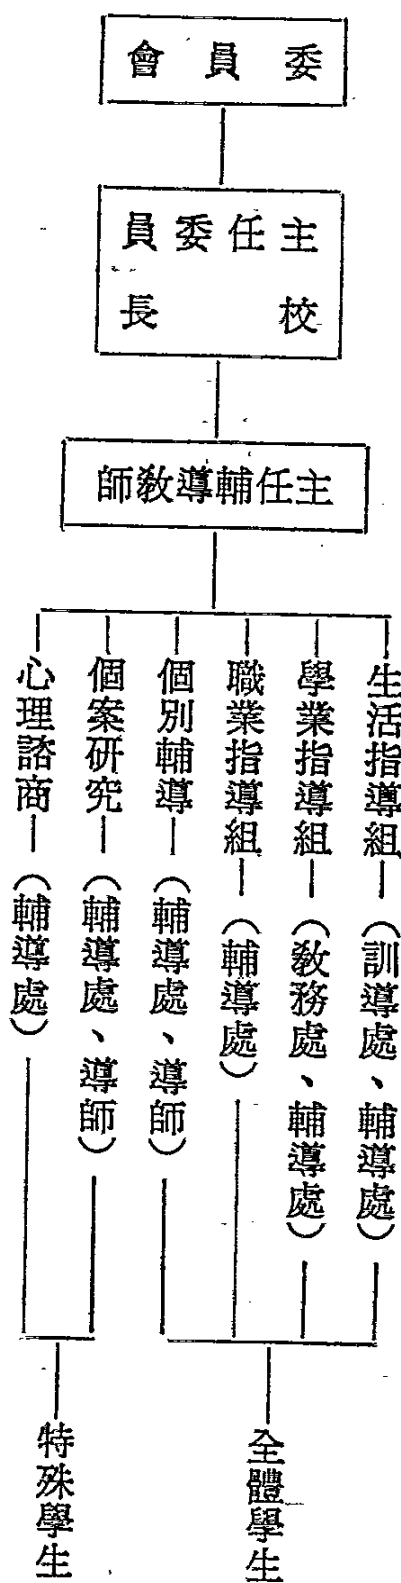 委員會
主任委員
校長
主任輔導敎師
生活指導組—（訓導處、輔導處）
學業指導組—（敎務處、輔導處）
職業指導組—（輔導處）
個別輔導—（輔導處、導師）
個案研究—（輔導處、導師）
心理諮商—（輔導處）
全體學生
特殊學生